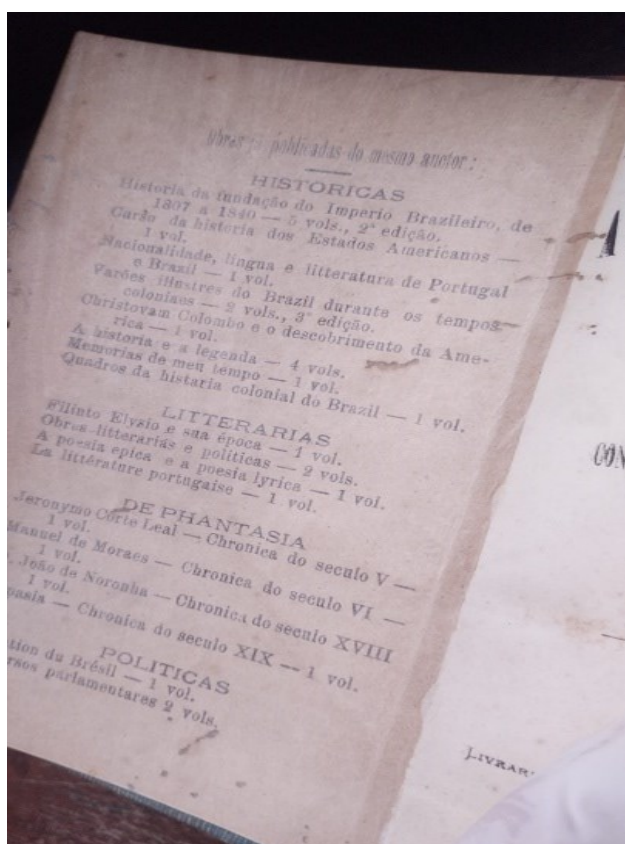 Obras já publicadas do mesmo auctor:
HISTORICAS
Historia da fundação do Imperio Brazileiro, de
1807 a 1840 — 5 vols., 2ª edição.
da historia dos Estados Americanos —
1 vol.
Nacionalidade, lingua e litteratura de Portugal
e Brazil — 1 vol.
Varões illustres do Brazil durante os tempos
coloniaes — 2 vols., 3ª edição.
Christovam Colombo e o descobrimento da Ame-
rica — 1 vol.
A historia e a legenda — 4 vols.
Memorias de meu tempo — 1 vol.
Quadros da histaria colonial do Brazil — 1 vol.
LITTERARIAS
Filinto Elysio e sua época — 1 vol.
Obras litterarias e politicas — 2 vols.
A poesia epica e a poesia lyrica — 1 vol.
La littérature portugaise — 1 vol.
DE PHANTASIA
Jeronymo Côrte Leal — Chronica do seculo V —
1 vol.
Manuel de Moraes — Chronica do seculo VI —
1 vol.
João de Noronha — Chronica do seculo XVIII
1 vol.
pasia — Chronica do seculo XIX — 1 vol.
POLITICAS
tion du Brésil — 1 vol.
rsos parlamentares 2 vols.
A
CON
LIVRAR